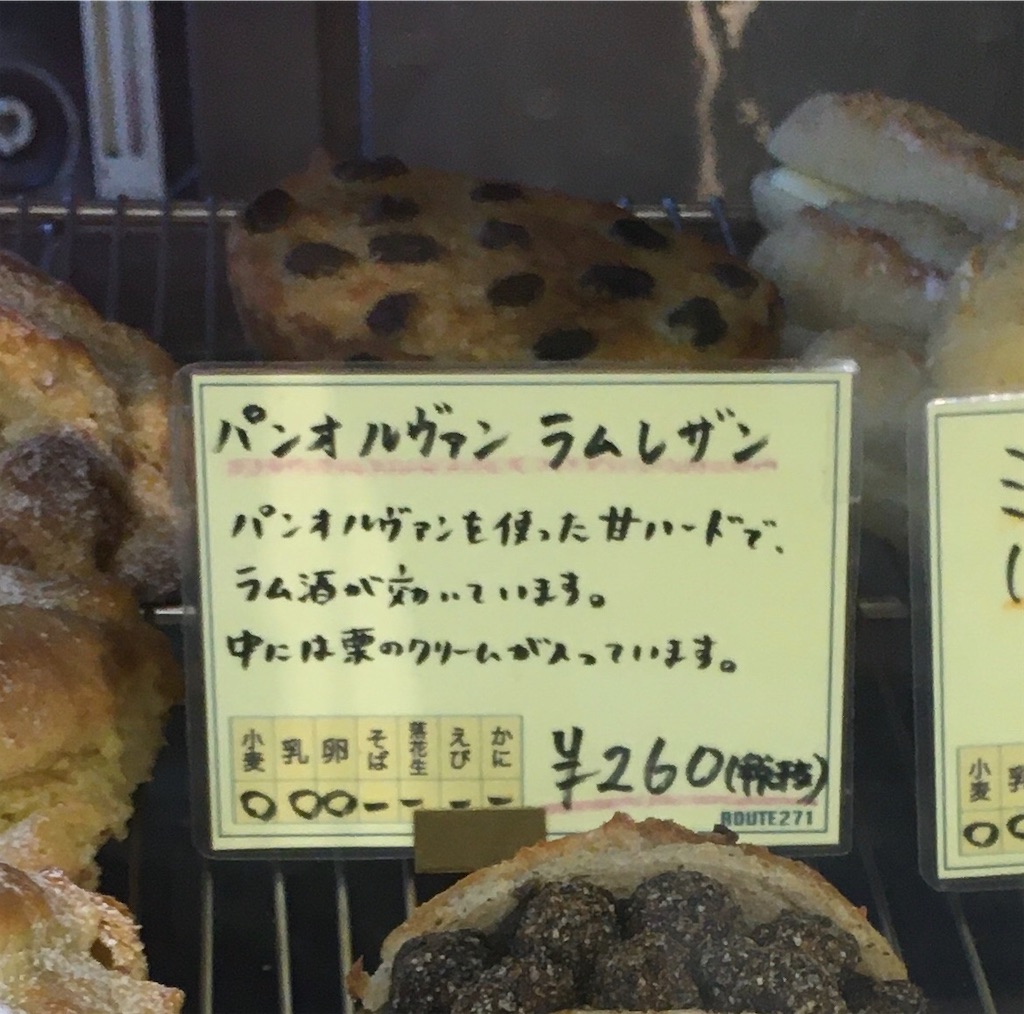 パンオルヴァン ラムレザン
パンオルヴァンを使った甘ハードで、
ラム酒が効いています。
中には栗のクリームが入っています。
小麦 乳 卵 そば 落花生 えび かに
○ ○ ○ ー ー ー ー
¥260(税抜)
ROUTE271
小麦 乳
○ ○